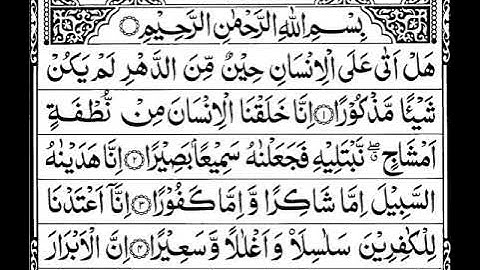 بِسْمِ اللهِ الرَّحْمٰنِ الرَّحِيْمِ
هَلْ اَتٰى عَلَى الْاِنْسَانِ حِيْنٌ مِّنَ الدَّهْرِ لَمْ يَكُنْ
شَيْئًا مَّذْكُوْرًا ۝۱ اِنَّا خَلَقْنَا الْاِنْسَانَ مِنْ نُّطْفَةٍ
اَمْشَاجٍ ۖ نَّبْتَلِيْهِ فَجَعَلْنٰهُ سَمِيْعًاۢ بَصِيْرًا ۝۲ اِنَّا هَدَيْنٰهُ
السَّبِيْلَ اِمَّا شَاكِرًا وَّاِمَّا كَفُوْرًا ۝۳ اِنَّاۤ اَعْتَدْنَا
لِلْكٰفِرِيْنَ سَلٰسِلَا۟ وَاَغْلٰلًا وَّسَعِيْرًا ۝۴ اِنَّ الْاَبْرَارَ